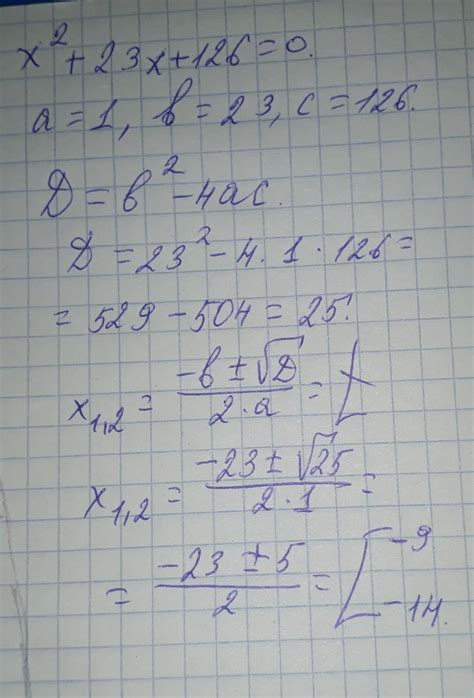 x² + 23x + 126 = 0.
a = 1, b = 23, c = 126.
D = b² - 4ac.
D = 23² - 4 · 1 · 126 =
= 529 - 504 = 25.
x₁,₂ = (-b ± √D) / (2 · a) =
x₁,₂ = (-23 ± √25) / (2 · 1) =
= (-23 ± 5) / 2 = [ -9
-14.